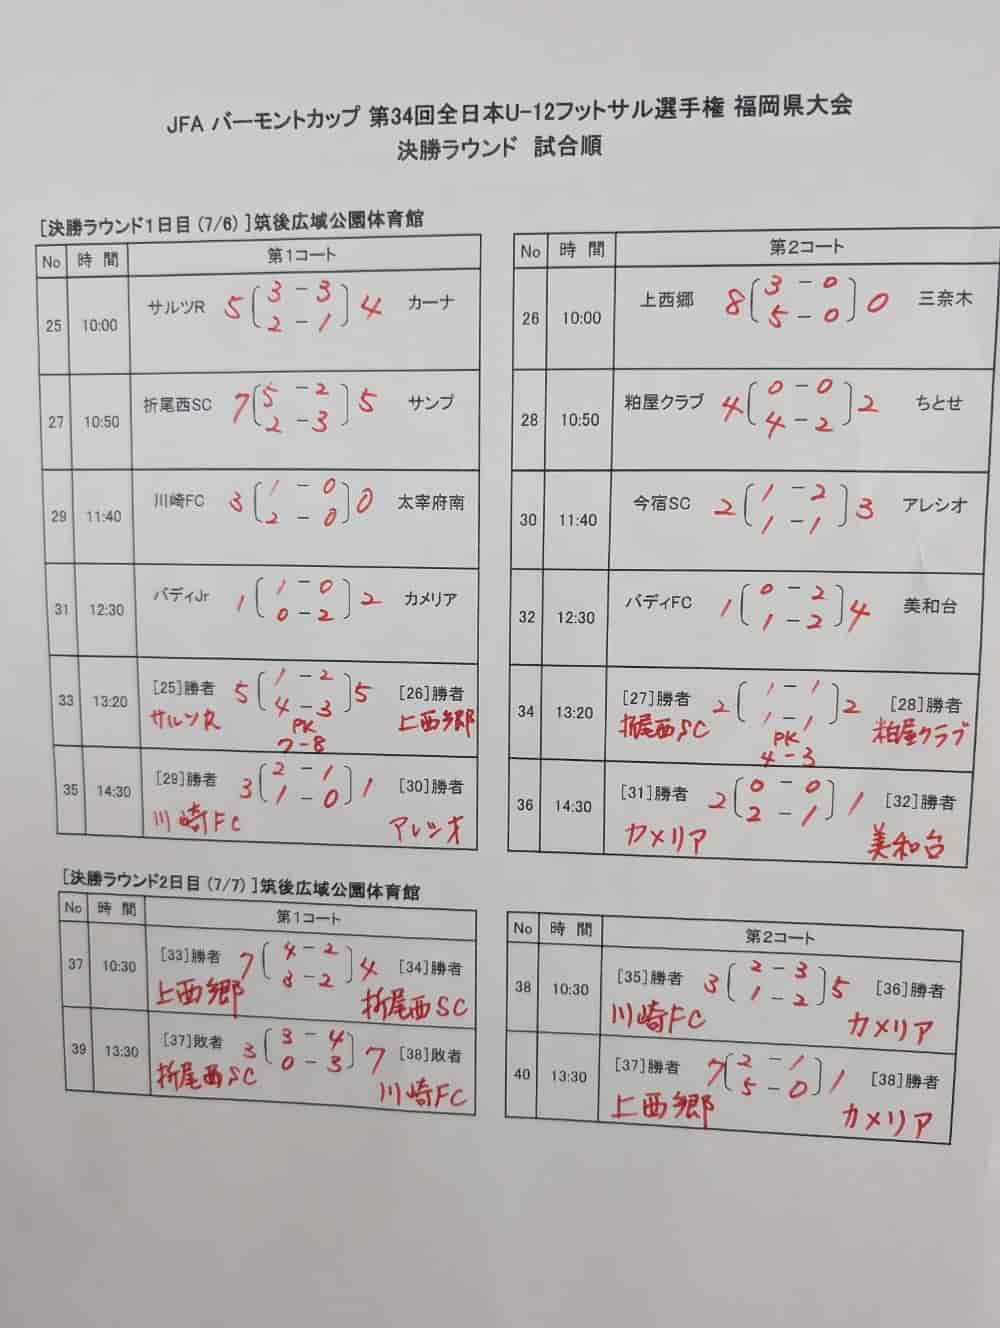 JFA バーモントカップ 第34回全日本U-12フットサル選手権 福岡県大会
決勝ラウンド 試合順
[決勝ラウンド1日目 (7/6) ]筑後広域公園体育館
No 時間 第1コート
25 10:00 サルツR 5 (3 - 3) 4 カーナ
2 - 1
27 10:50 折尾西SC 7 (5 - 2) 5 サンプ
2 - 3
29 11:40 川崎FC 3 (1 - 0) 0 太宰府南
2 - 0
31 12:30 バディJr 1 (1 - 0) 2 カメリア
0 - 2
33 13:20 [25]勝者 5 (1 - 2) 5 [26]勝者
サルツR 4 - 3 上西郷
PK
7-8
35 14:30 [29]勝者 3 (2 - 1) 1 [30]勝者
川崎FC 1 - 0 アレシオ
No 時間 第2コート
26 10:00 上西郷 8 (3 - 0) 0 三奈木
5 - 0
28 10:50 粕屋クラブ 4 (0 - 0) 2 ちとせ
4 - 2
30 11:40 今宿SC 2 (1 - 2) 3 アレシオ
1 - 1
32 12:30 バディFC 1 (0 - 2) 4 美和台
1 - 2
34 13:20 [27]勝者 2 (1 - 1) 2 [28]勝者
折尾西SC 1 - 1 粕屋クラブ
PK
4-3
36 14:30 [31]勝者 2 (0 - 0) 1 [32]勝者
カメリア 2 - 1 美和台
[決勝ラウンド2日目 (7/7) ]筑後広域公園体育館
No 時間 第1コート
37 10:30 [33]勝者 7 (4 - 2) 4 [34]勝者
上西郷 3 - 2 折尾西SC
39 13:30 [37]敗者 3 (3 - 4) 7 [38]敗者
折尾西SC 0 - 3 川崎FC
No 時間 第2コート
38 10:30 [35]勝者 3 (2 - 3) 5 [36]勝者
川崎FC 1 - 2 カメリア
40 13:30 [37]勝者 7 (2 - 1) 1 [38]勝者
上西郷 5 - 0 カメリア